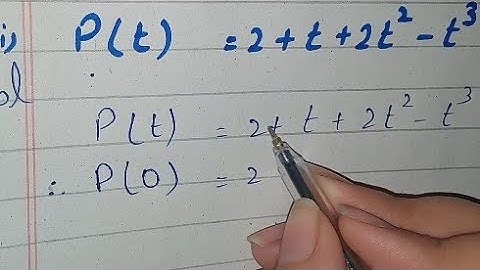 i) P(t) = 2 + t + 2t² - t³
ol
P(t) = 2 + t + 2t² - t³
∴ P(0) = 2